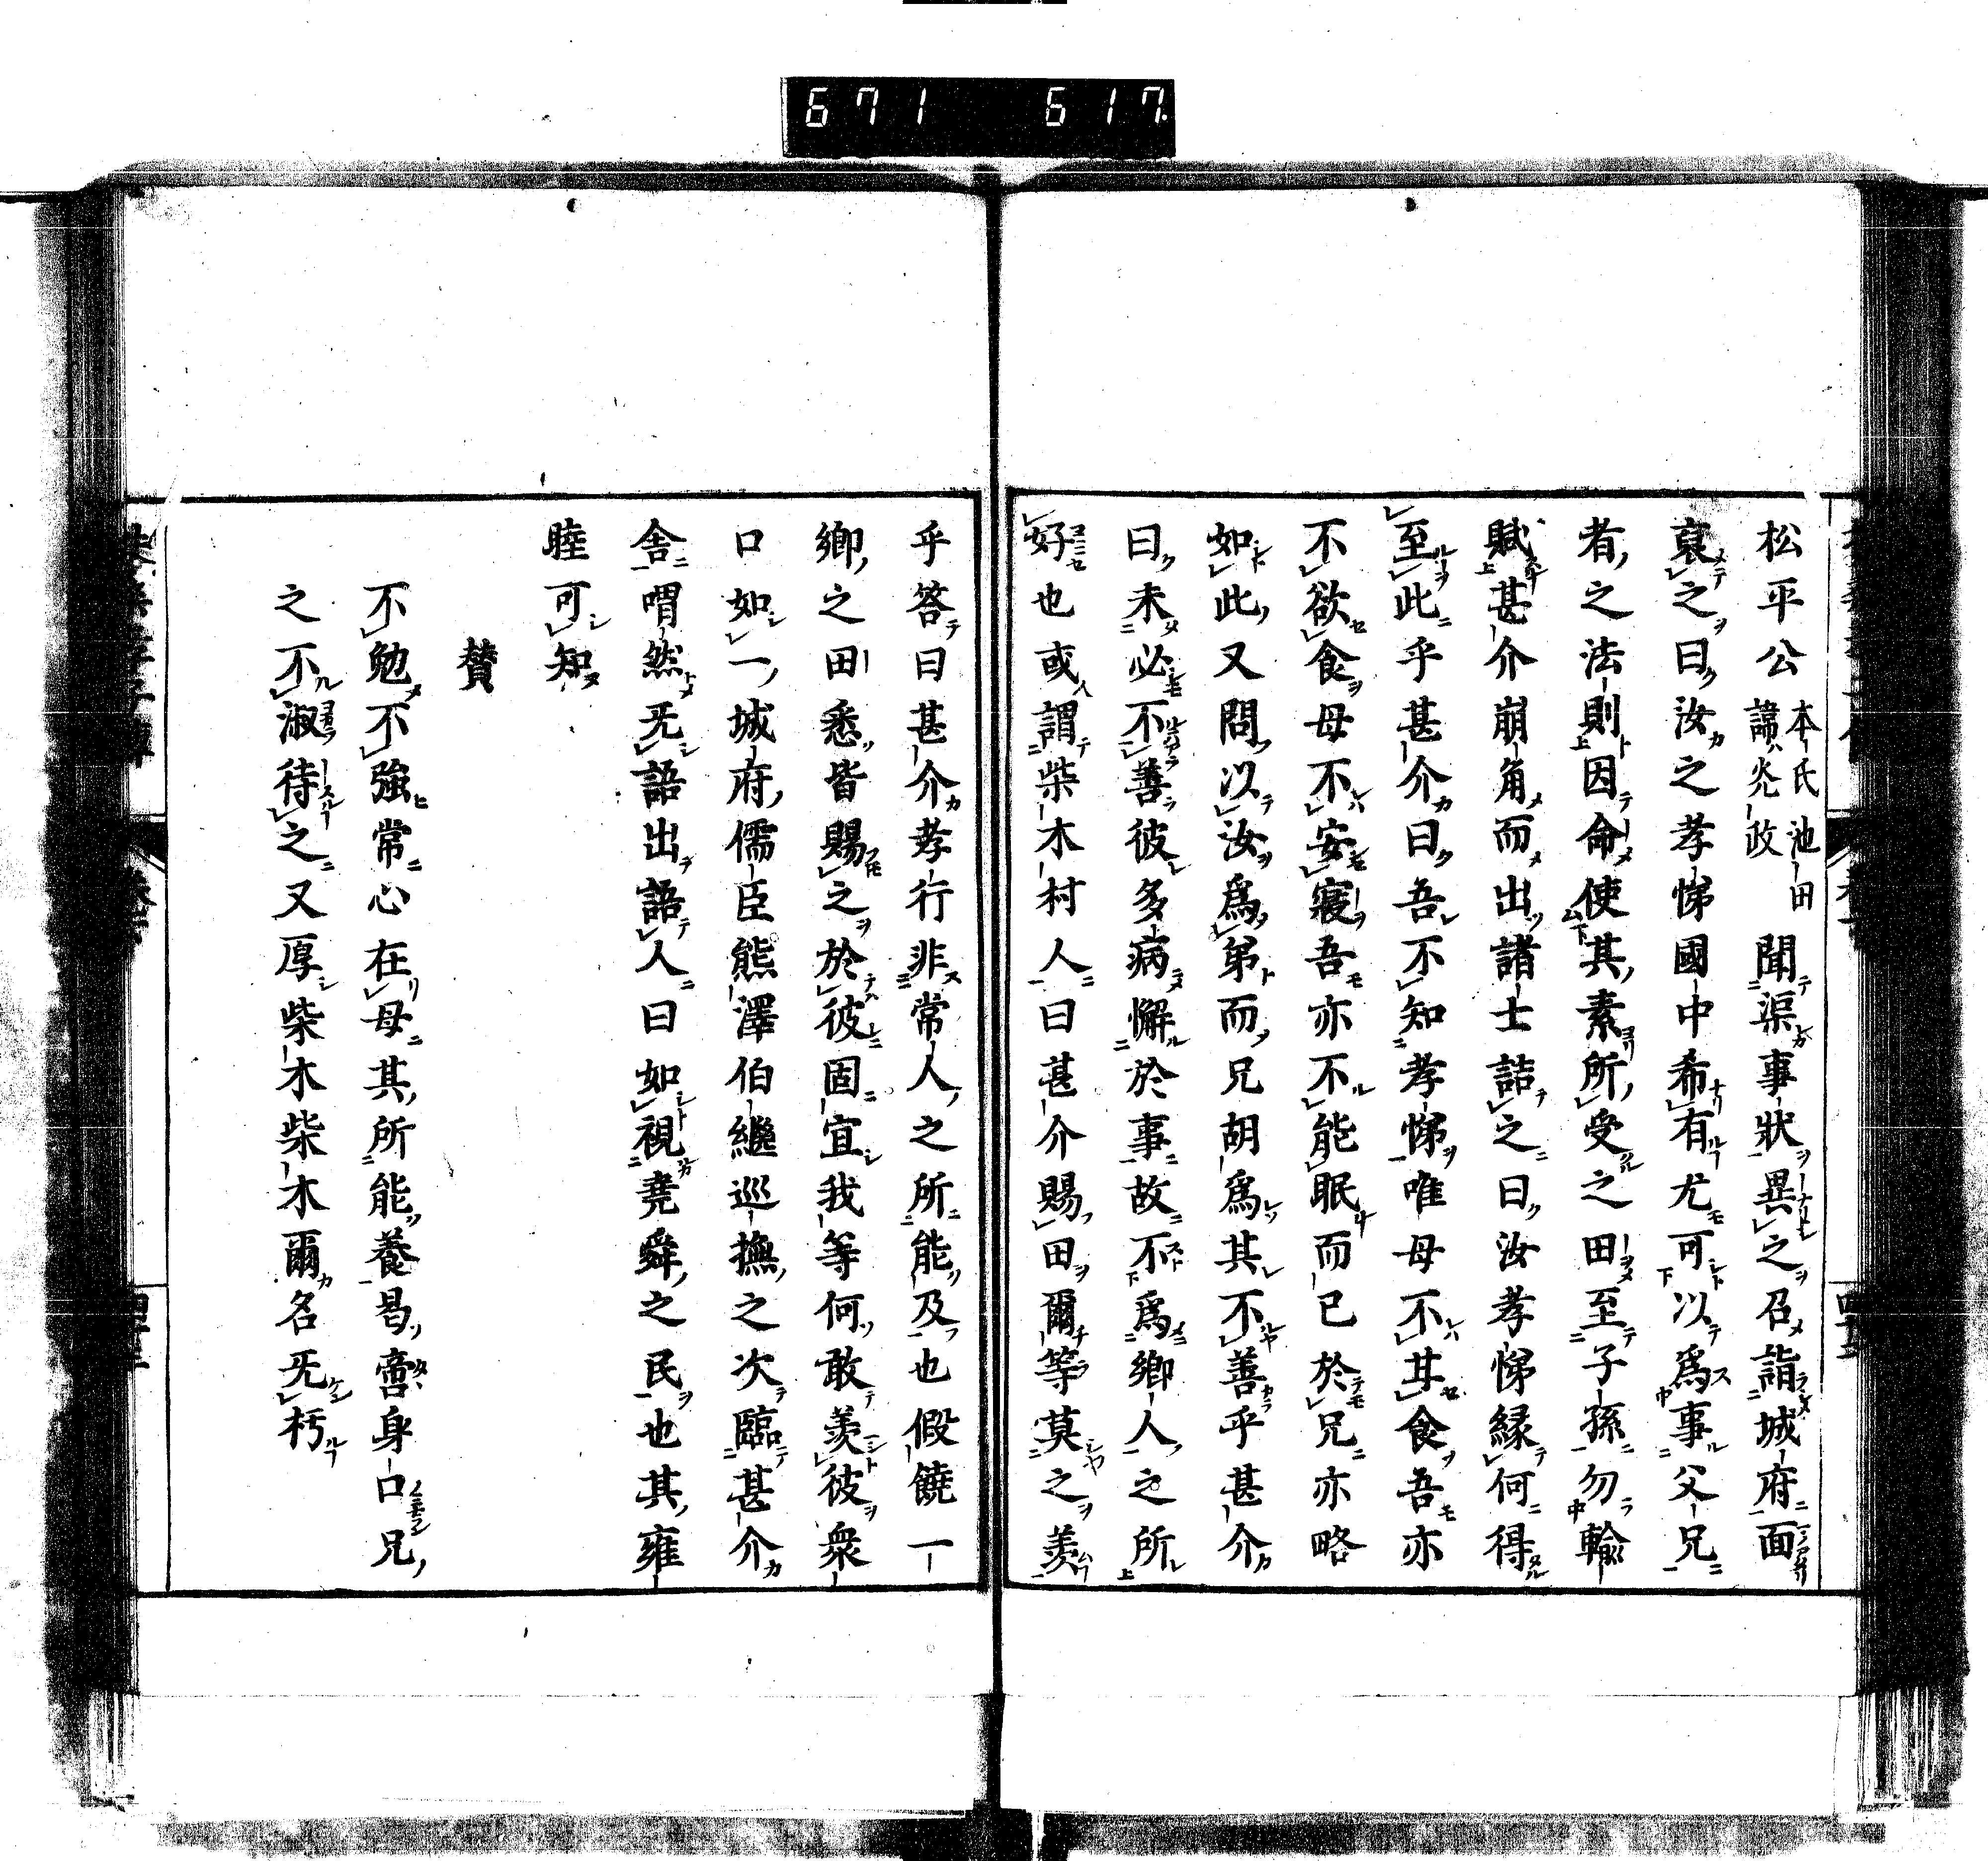 671 617
松平公本氏池田諱光政聞渠事狀異之召詣城府面
裒之曰汝之孝悌國中希有尤可以爲事父兄
者之法則因命使其素所受之田至子孫勿輸
賦甚介崩角而出諸士詰之曰汝孝悌緣何得
至此乎甚介曰吾不知孝悌唯母不甘食吾亦
不欲食母不安寢吾亦不能眠而已於兄亦略
如此又問以汝爲弟而兄胡爲其不善乎甚介
曰未必不善彼多病懈於事故不爲鄉人之所
好也或謂柴木村人曰甚介賜田爾等莫之羨
乎答曰甚介孝行非常人之所能及也假饒一
鄉之田悉皆賜之於彼固宜我等何敢羨彼衆
口如一城府儒臣熊澤伯繼巡撫之次臨甚介
舍喟然无語出語人曰如視堯舜之民也其雍
睦可知
贊
不勉不強常心在母其所能養曷啻身口兄
之不淑待之又厚柴木柴木爾名无朽